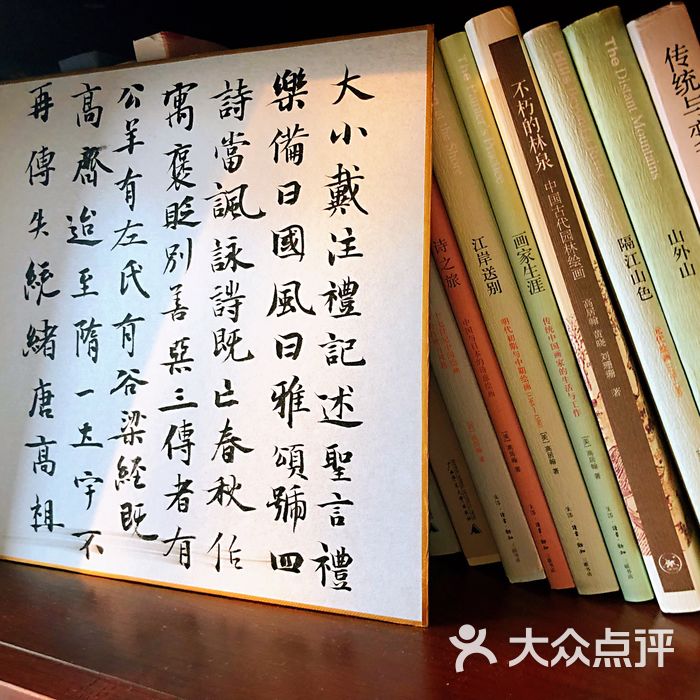 大小戴注禮記述聖言禮
樂備曰國風曰雅頌號四
詩當諷詠詩既亡春秋作
寓褒貶別善惡三傳者有
公羊有左氏有谷梁經既
高齊迨至隋一土宇不
再傳失統緒唐高祖
诗之旅
中国与日本的诗意绘画
江岸送别
明代初期与中期绘画
[美] 高居翰 著
The Painter's Practice
画家生涯
传统中国画家的生活与工作
[美] 高居翰 著
不朽的林泉
中国古代园林绘画
高居翰 黄晓 刘珊珊 著
隔江山色
The Distant Mountains
山外山
传统与
大众点评